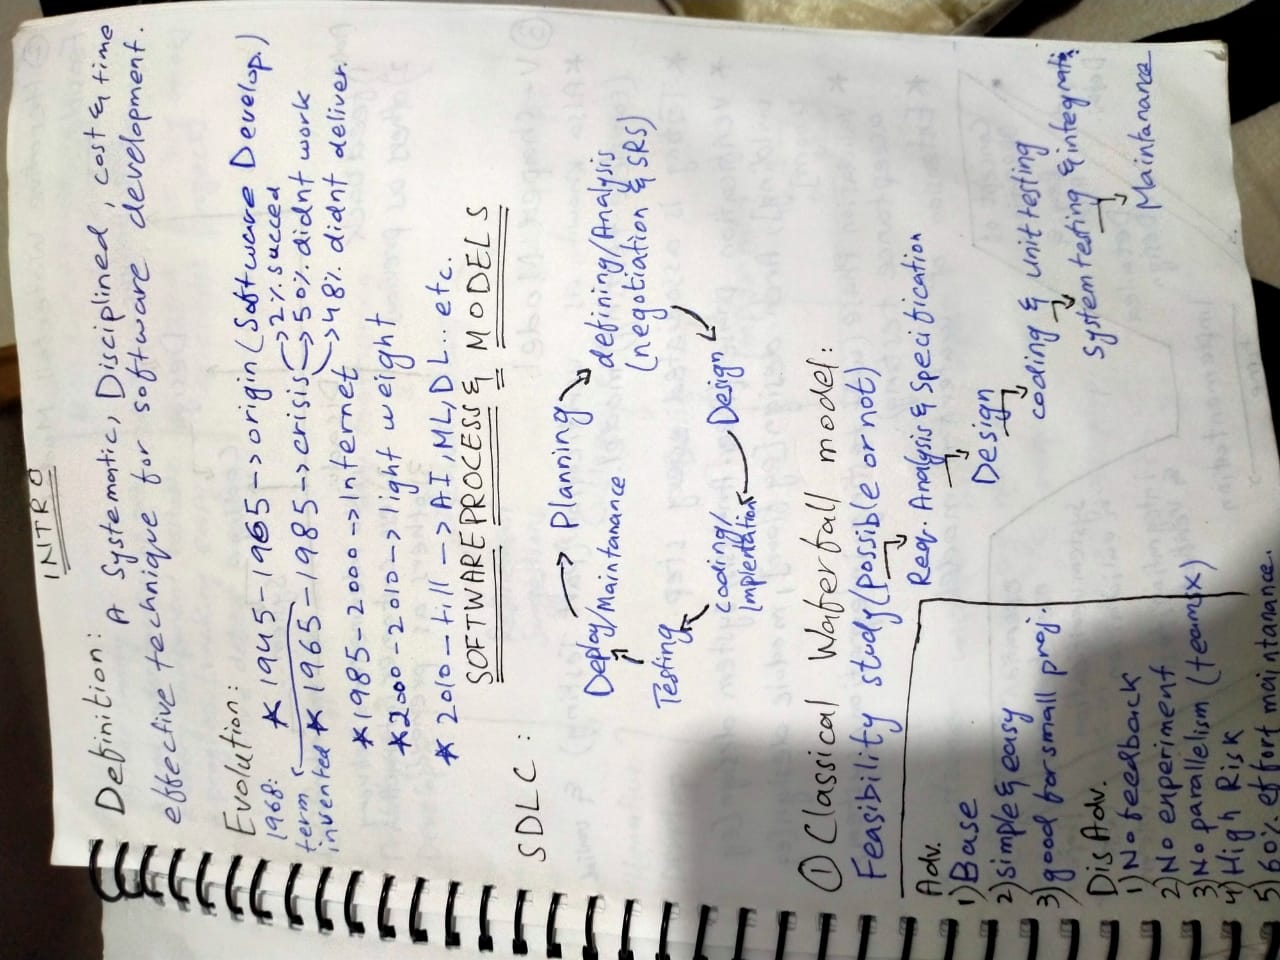 INTRO
Definition:
A Systematic, Disciplined, cost & time
effective technique for software development.
Evolution:
1968:
term
invented
* 1945-1965 -> origin (Software Develop.)
* 1965-1985 -> crisis -> 2% succed
-> 50% didnt work
-> 48% didnt deliver.
* 1985-2000 -> internet
* 2000-2010 -> light weight
* 2010 - till -> AI, ML, DL.. etc.
SOFTWARE PROCESS & MODELS
SDLC :
Planning
defining/Analysis
(negotiation & SRS)
Design
coding/
Implentation
Testing
Deploy/Maintanance
① Classical Waterfall model:
Feasibility study (possible or not)
Req. Analysis & Specification
Design
coding & unit testing
system testing & integrati
Maintanance
Adv.
1) Base
2) simple & easy
3) good for small proj.
DisAdv.
1) No feedback
2) No experiment
3) No parallelism (teams x)
4) High Risk
5) 60% effort maintanance.